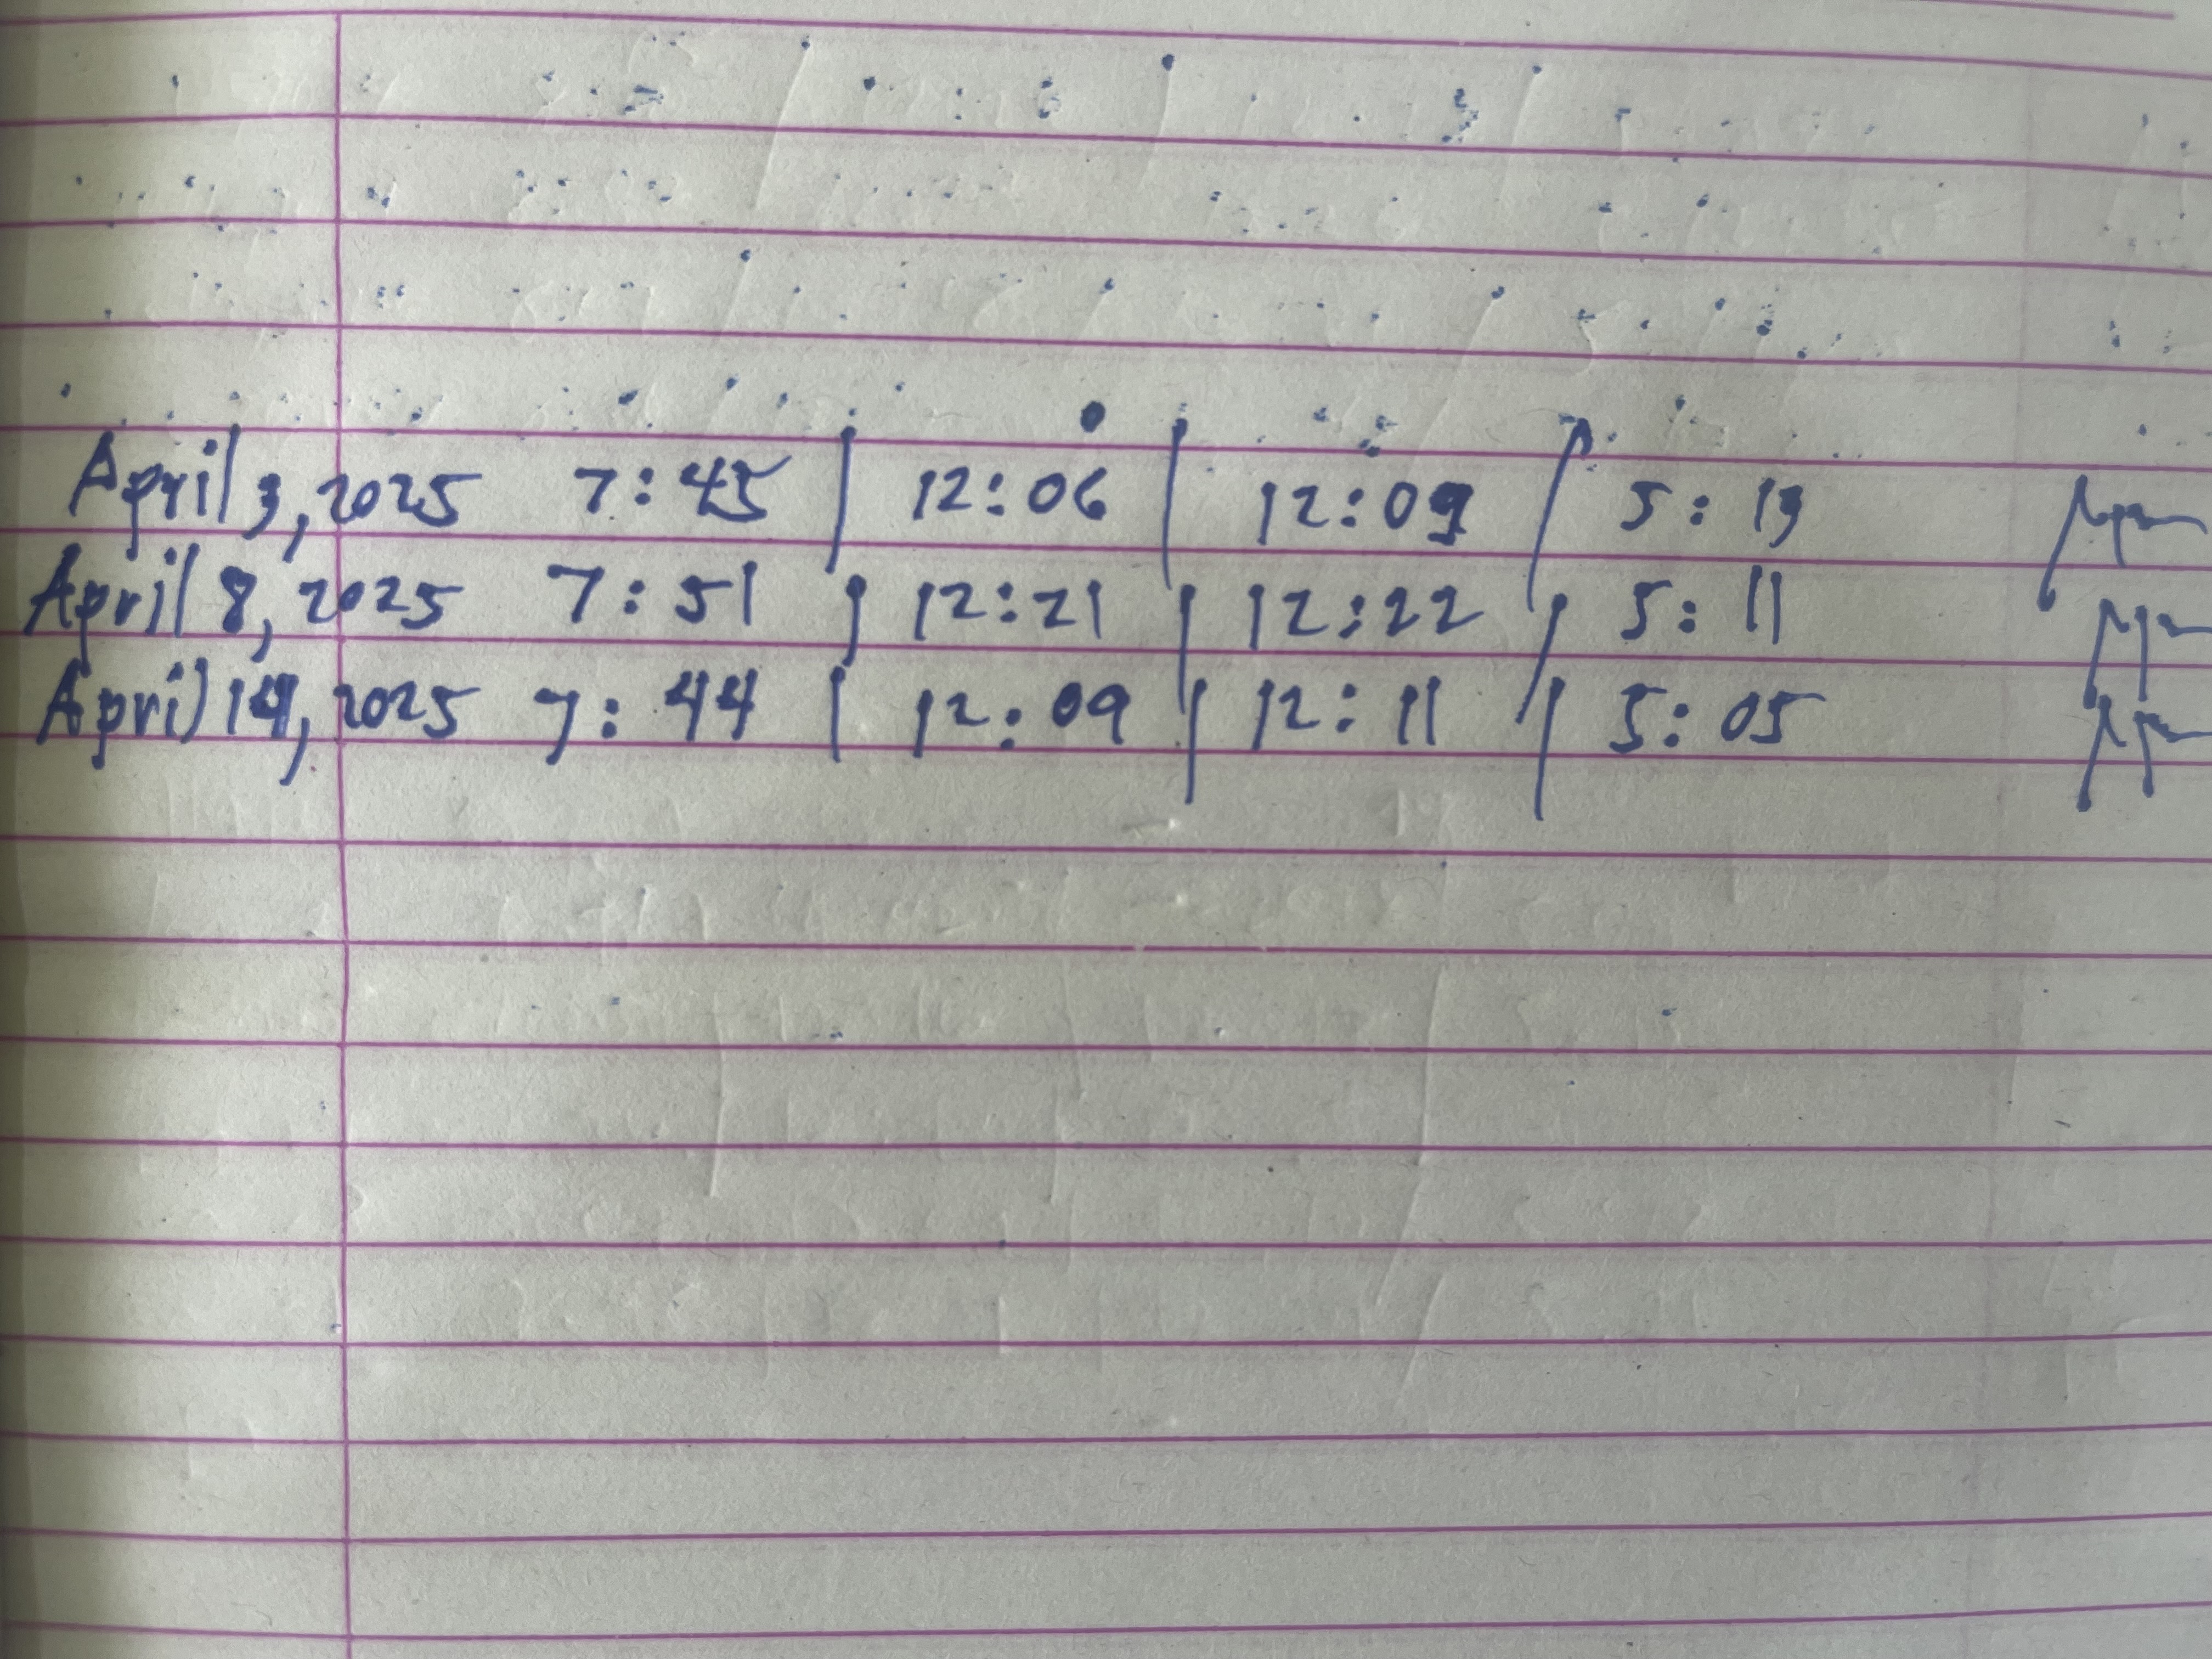 April 3, 2025 7:45 | 12:06 | 12:09 / 5:13
April 8, 2025 7:51 | 12:21 | 12:22 / 5:11
April 14, 2025 7:44 | 12:09 | 12:11 | 5:05